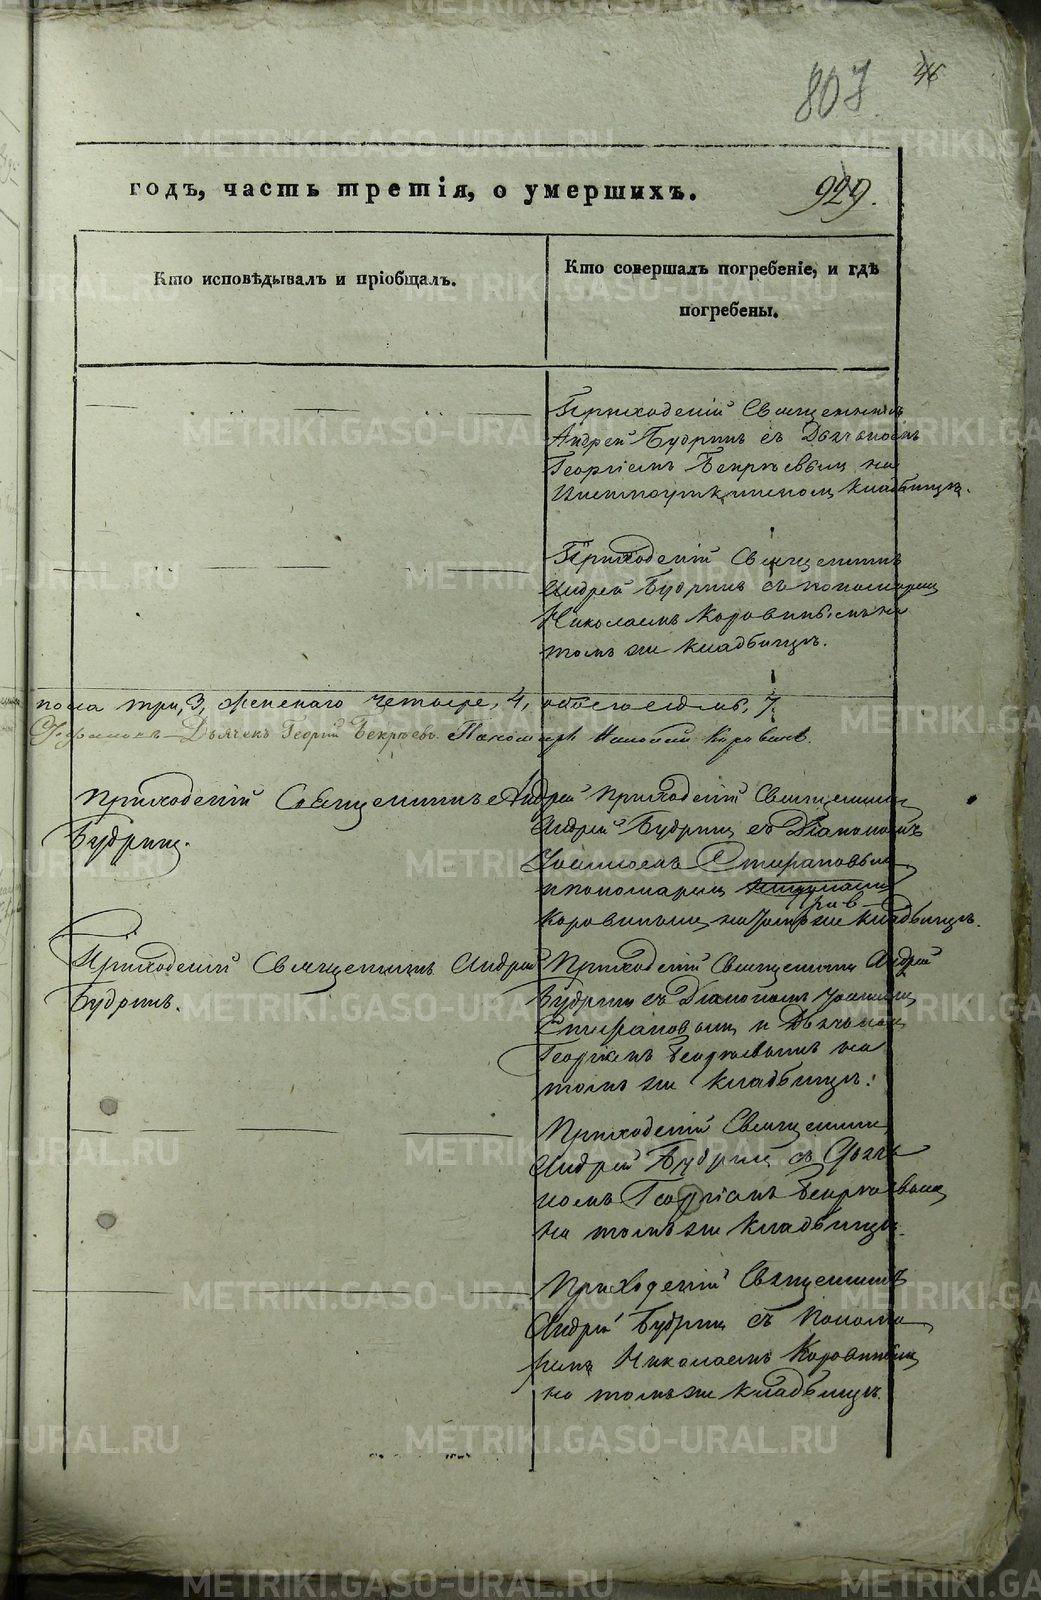 807
46
годъ, часть третія, о умершихъ.
929.
Кто исповѣдывалъ и пріобщалъ.
Кто совершалъ погребеніе, и гдѣ
погребены.
Приходскій Священникъ
Андрей Будринъ съ Дьячкомъ
Георгіемъ Бекрѣевымъ на
кладбищѣ.
Приходскій Священникъ
Андрей Будринъ съ пономаремъ
Николаемъ Коровинымъ на
томъ же кладбищѣ.
пола три, 3, женскаго четыре, 4, обоего семь, 7
Дьячекъ Георгій Бекрѣевъ. Пономарь Николай Коровинъ.
Приходскій Священникъ Андрей
Будринъ.
Приходскій Священникъ
Андрей Будринъ съ Діакономъ
Іоанномъ Стефановымъ
и пономаремъ
Коровинымъ на томъ же кладбищѣ.
Приходскій Священникъ Андрей
Будринъ.
Приходскій Священникъ Андрей
Будринъ съ Діакономъ Іоанномъ
Стефановымъ и Дьячкомъ
Георгіемъ Бекрѣевымъ на
томъ же кладбищѣ.
Приходскій Священникъ
Андрей Будринъ съ Дьяч-
комъ Георгіемъ Бекрѣевымъ
на томъ же кладбищѣ.
Приходскій Священникъ
Андрей Будринъ съ Понома-
ремъ Николаемъ Коровинымъ
на томъ же кладбищѣ.
METRIKI.GASO-URAL.RU